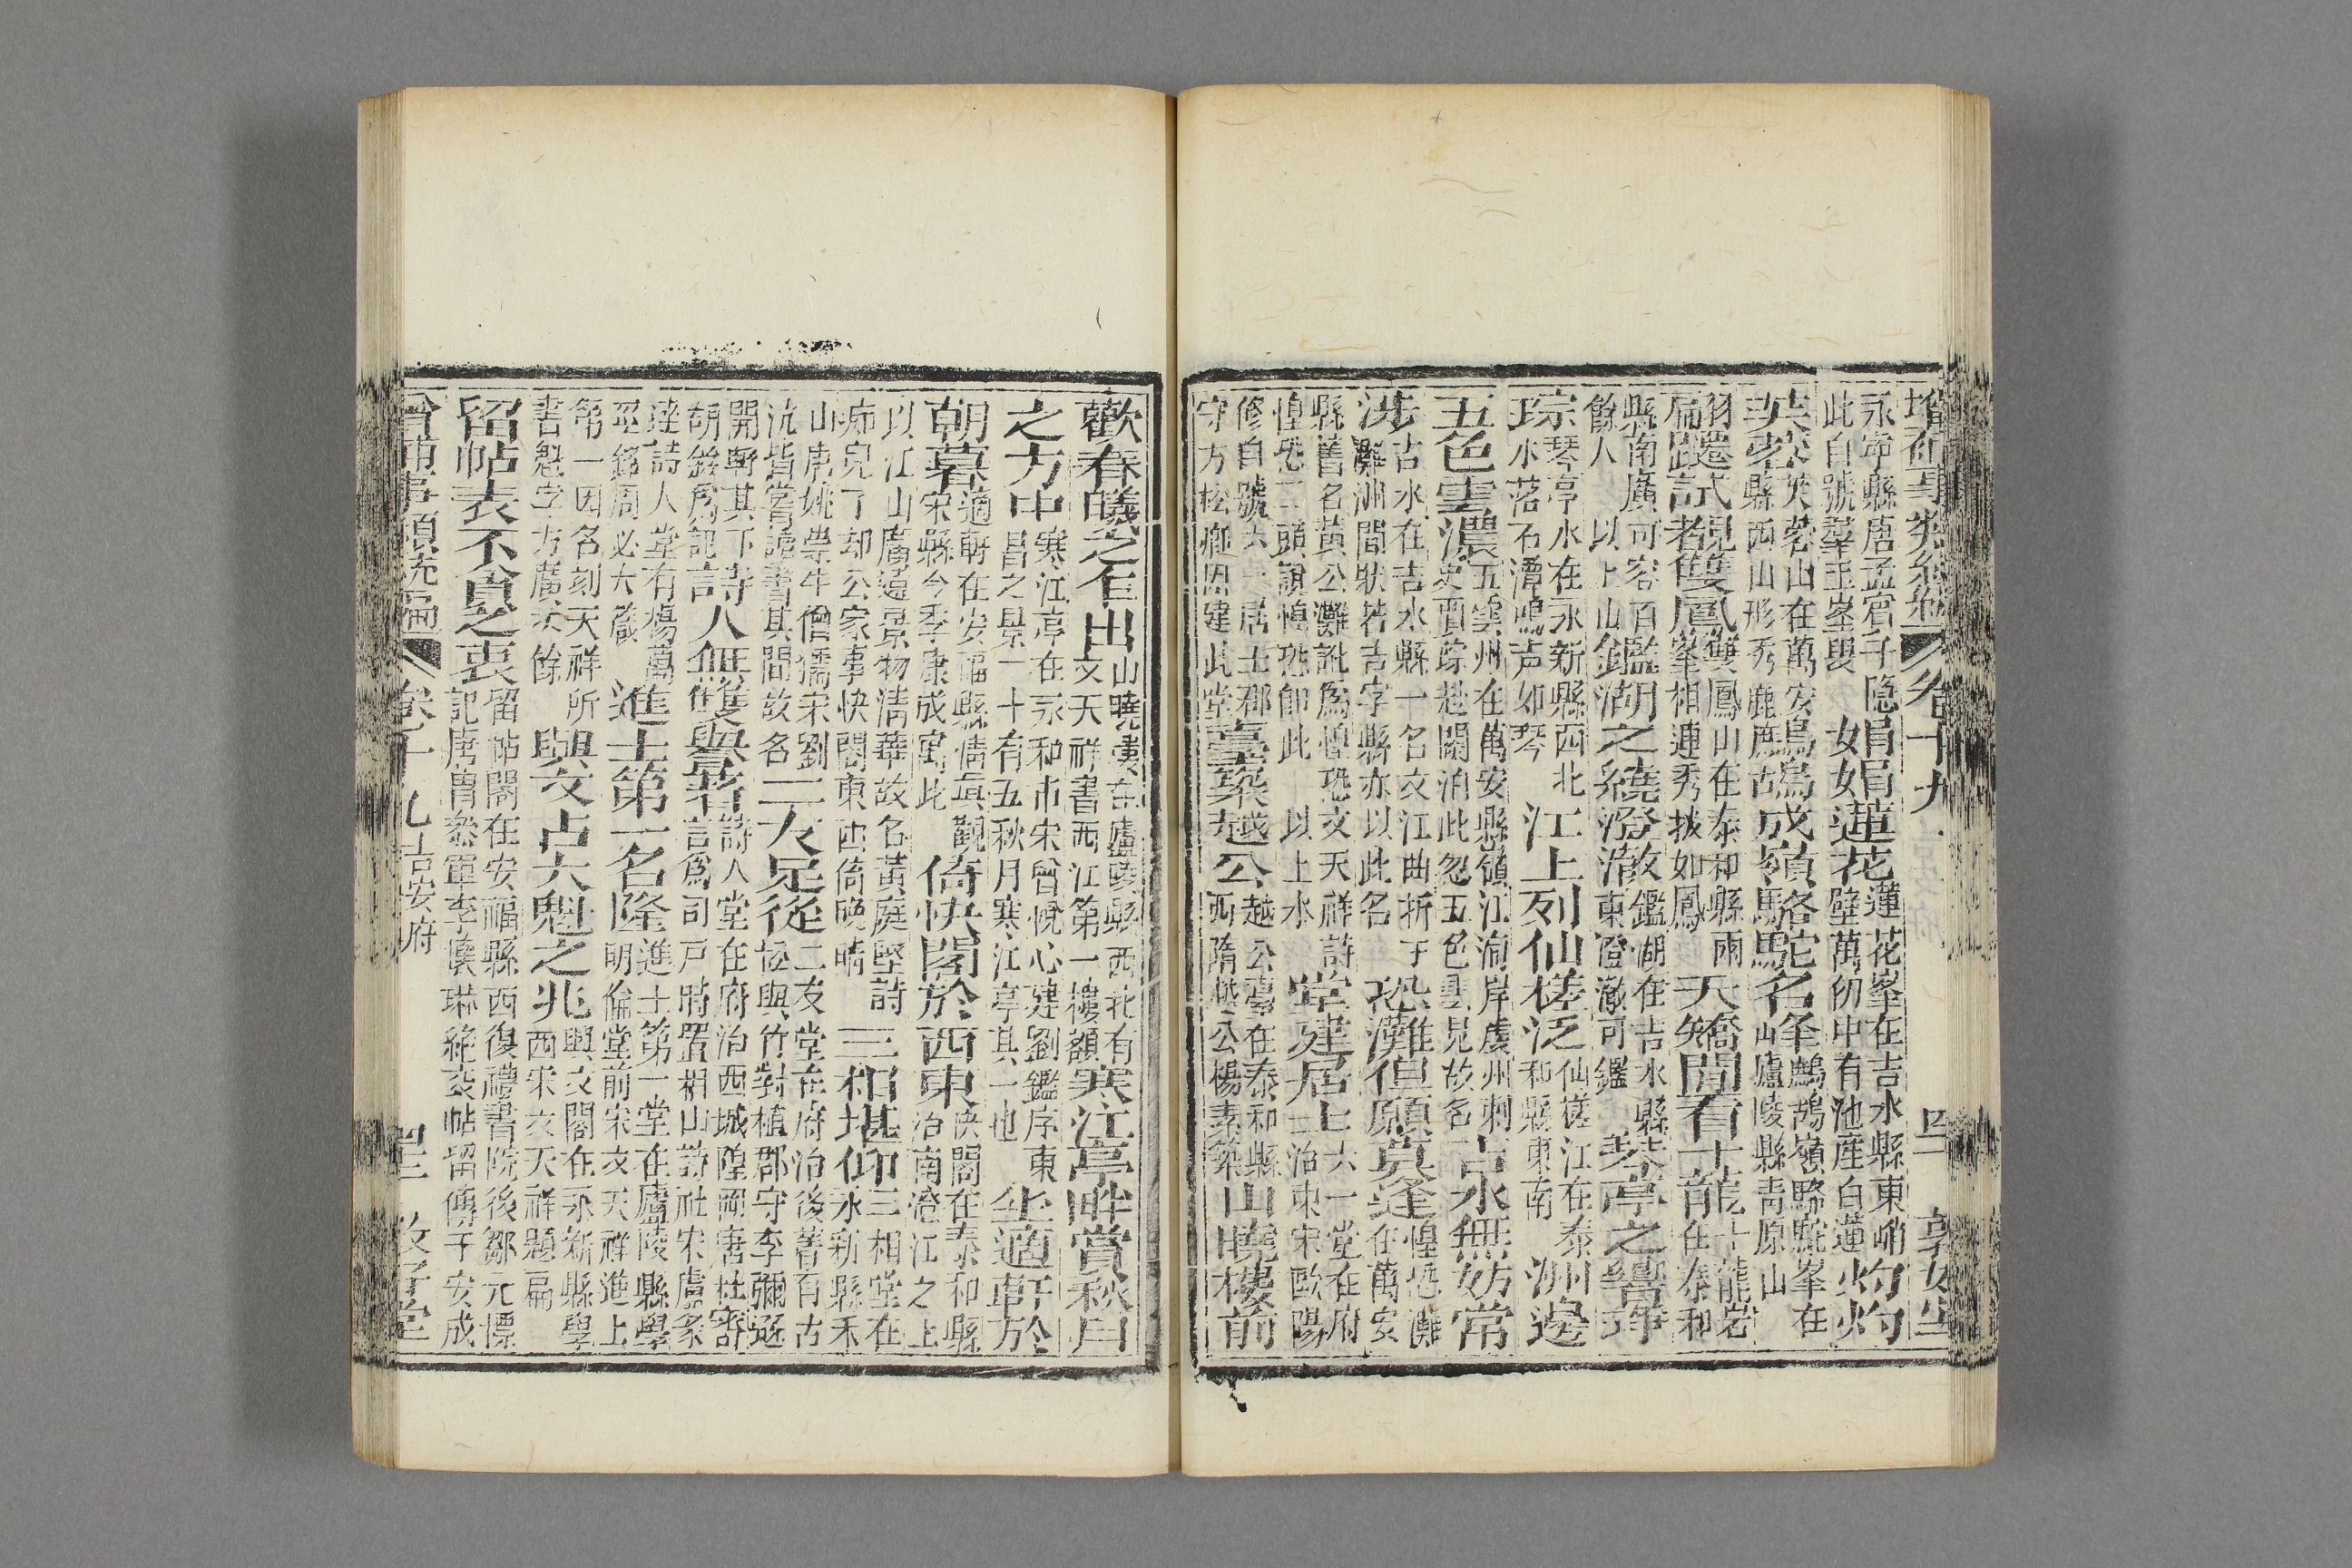 卷十九
永寧縣唐孟賓于隱
此自號羣玉峯叟
娟娟蓮花
蓮花峯在吉水縣東峭
壁萬仞中有池産白蓮
灼灼
芙蓉
芙蓉山在萬安
縣西山形秀麗
成嶺駱駝名峯
鷓鴣嶺駱駝峯在
山廬陵縣靑原山
翩躚試覩雙鳳
雙鳳山在泰和縣兩
峯相連秀拔如鳳
天矯閒看十龍
十龍岩
在泰和
縣南廣可容百
餘人 以上山
鑑湖之繞澄澈
鑑湖在吉水縣
東澄澈可鑑
琴亭之響琤
琮
琴亭水在永新縣西北
水落石潭鳴声如琴
江上列仙槎泛
仙槎江在泰
和縣東南
洲邊
五色雲濃
五雲州在萬安縣嶺江洞岸虔州刺
史賈踪赴闕泊此忽五色雲見故名
吉水無妨常
涉
古水在吉水縣一名文江曲折于
灘洲間狀若吉字縣亦以此名
恐灘但願莫逢
惶恐灘
在萬安
縣舊名黃公灘訛爲惶恐文天祥詩
惶恐灘頭說惶恐卽此 以上水
堂建居士
六一堂在府
治東宋歐陽
修自號六一居士郡
守方松卿因建此堂
臺築越公
越公臺在泰和縣
西隋越公楊素築
山曉樓前
歡春曦之乍出
山曉樓在廬陵縣西北有
文天祥書西江第一樓額
寒江亭畔賞秋月
之方中
寒江亭在永和市宋曾悅心建劉鑑序東
昌之景一十有五秋月寒江亭其一也
坐適軒於
朝暮
適軒在安福縣淸眞觀
宋縣令李康成寓此
倚快閣於西東
快閣在泰和縣
治南澄江之上
以江山廣遠景物淸華故名黃庭堅詩
痴兒了却公家事快閣東西倚晩晴
三相堪仰
三相堂在
永新縣禾
山唐姚崇牛僧孺宋劉
沆皆嘗讀書其間故名
二友足從
二友堂在府治後舊有古
松與竹對植郡守李彌遜
開軒其下
胡銓爲記
詩人無雙譽著
詩人堂在府治西城隍岡唐杜審
言爲司戶時置相山詩社宋盧象
建詩人堂有楊萬
里銘周必大箴
進士第一名隆
進士第一堂在廬陵縣學
明倫堂前宋文天祥進士
第一因名刻天祥所
書魁字方廣丈餘
興文占大魁之兆
興文閣在永新縣學
西宋文天祥題扁
留帖表不貪之衷
留帖閣在安福縣西復禮書院後鄒元標
記唐曹叅軍李倐琳絶交帖留傳于安成
增補事類統編
卷十九 吉安府